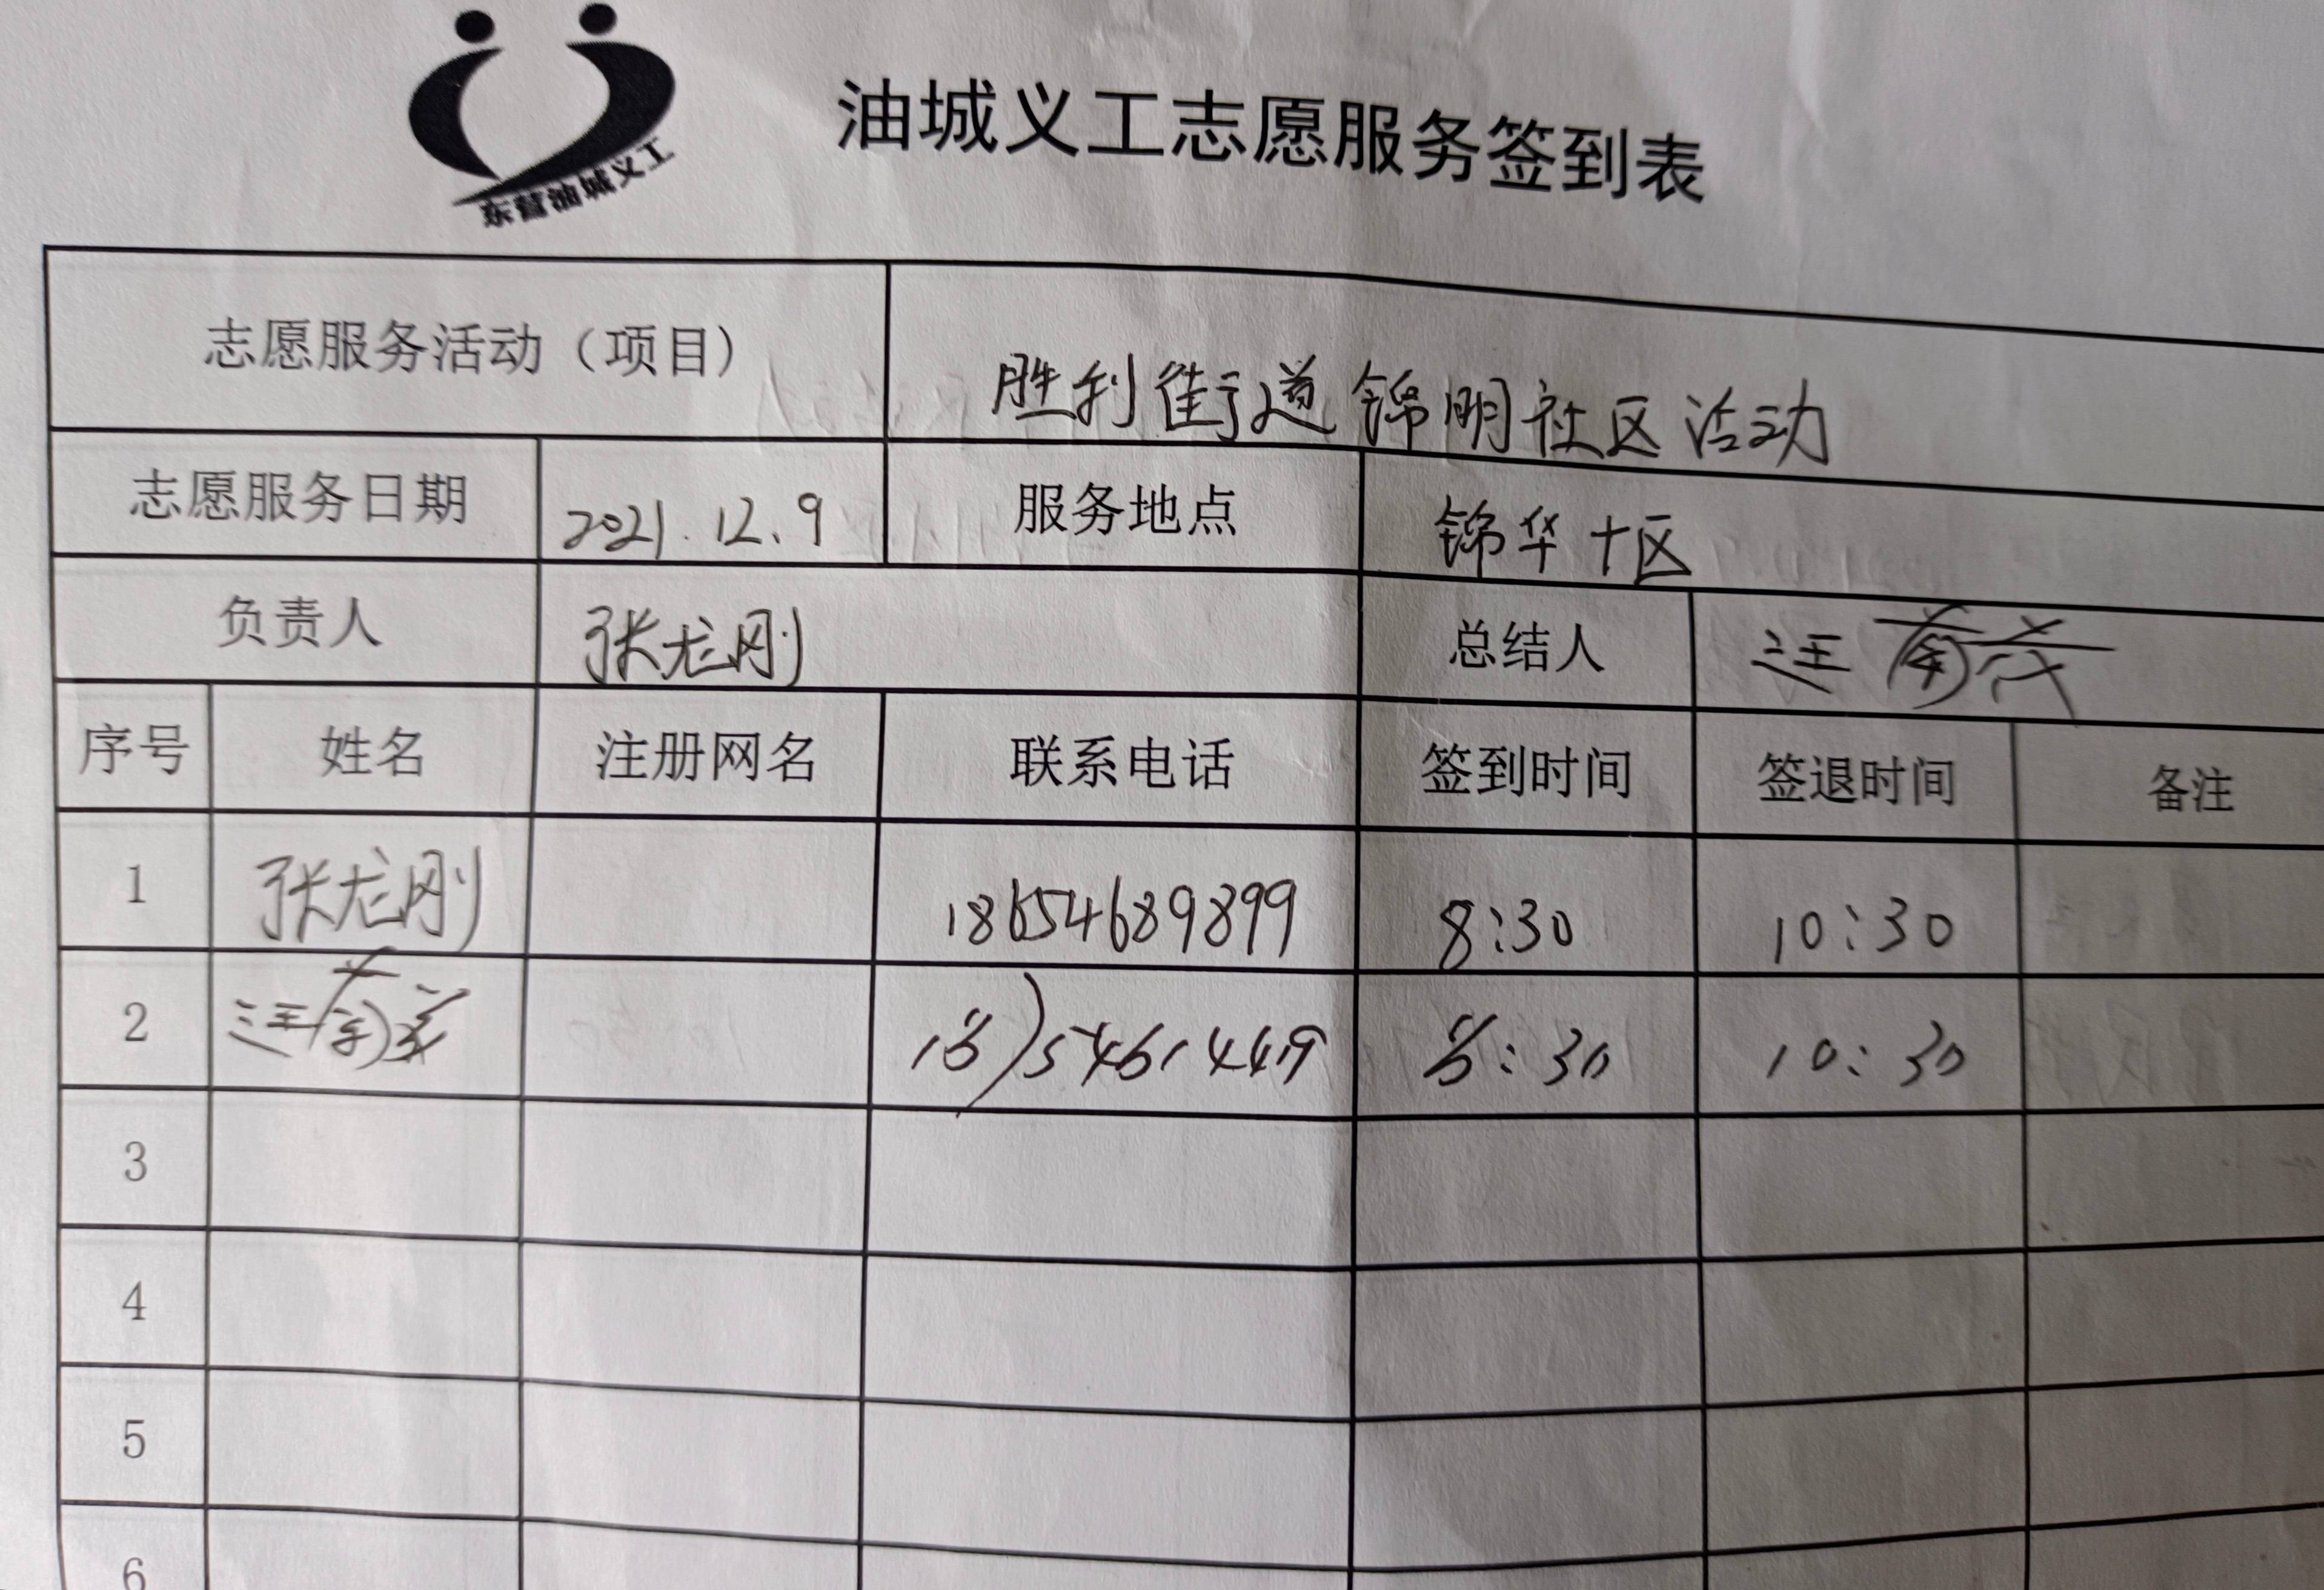 东营油城义工
油城义工志愿服务签到表
志愿服务活动（项目） 胜利街道锦明社区活动
志愿服务日期 2021.12.9 服务地点 锦华十区
负责人 张龙刚 总结人 汪
序号 姓名 注册网名 联系电话 签到时间 签退时间 备注
1 张龙刚 18654689899 8:30 10:30
2 汪 8:30 10:30
3
4
5
6